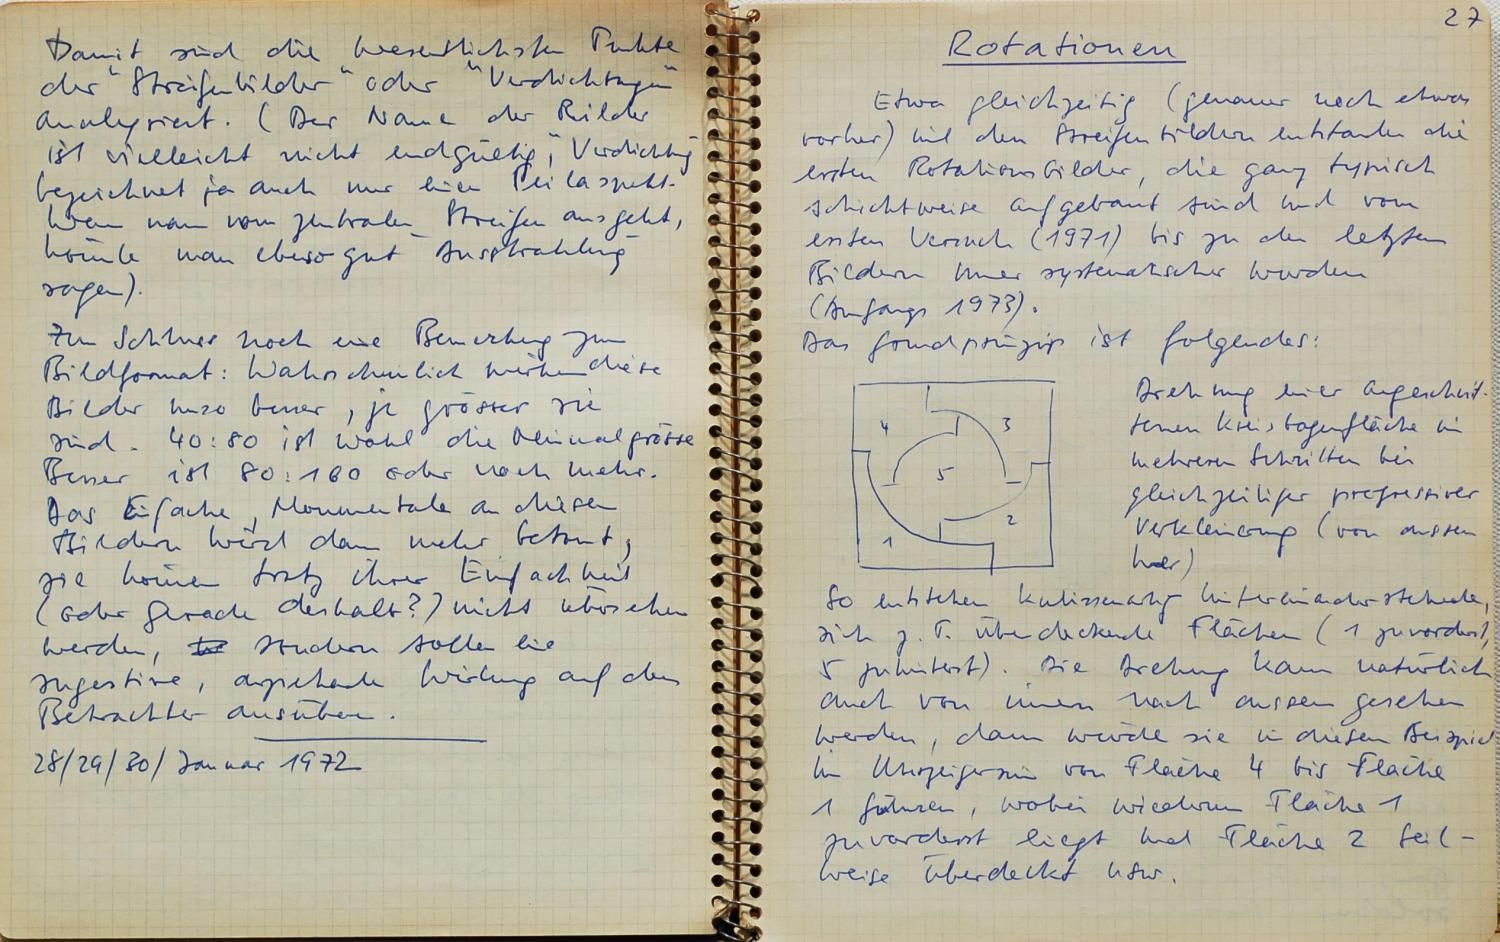 Damit sind die wesentlichsten Punkte
der "Streifenbilder" oder "Verdichtungen"
analysiert. (Der Name der Bilder
ist vielleicht nicht endgültig, "Verdichtung"
bezeichnet ja auch nur einen Teilaspekt.
Wenn man vom zentralen Streifen ausgeht,
könnte man ebenso gut "Ausstrahlung"
sagen).
Zum Schluss noch eine Bemerkung zum
Bildformat: Wahrscheinlich wirken diese
Bilder umso besser, je grösser sie
sind. 40:80 ist wohl die Minimalgrösse
Besser ist 80:160 oder noch mehr.
Das Einfache, Monumentale an diesen
Bildern wird dann mehr betont,
sie können trotz ihrer Einfachheit
(oder gerade deshalb?) nicht übersehen
werden, sondern sollen eine
sugestive, anziehende Wirkung auf den
Betrachter ausüben.
28/29/30/Januar 1972
27
Rotationen
Etwa gleichzeitig (genauer noch etwas
vorher) mit den Streifenbildern entstanden die
ersten Rotationsbilder, die ganz typisch
schichtweise aufgebaut sind und vom
ersten Versuch (1971) bis zu den letzten
Bildern immer systematischer wurden
(Anfangs 1973).
Das Grundprinzip ist folgendes:
4 3
5
2
1
Drehung einer angeschnit-
tenen Kreisbogenfläche in
mehreren Schritten bei
gleichzeitiger progressiver
Verkleinerung (von aussen
her)
So entstehen kulissenartig hintereinanderstehende,
sich z.T. überdeckende Flächen (1 zuvorderst,
5 zuhinterst). Die Drehung kann natürlich
auch von innen nach aussen gesehen
werden, dann würde sie in diesem Beispiel
im Uhrzeigersinn von Fläche 4 bis Fläche
1 führen, wobei wiederum Fläche 1
zuvorderst liegt und Fläche 2 teil-
weise überdeckt usw.